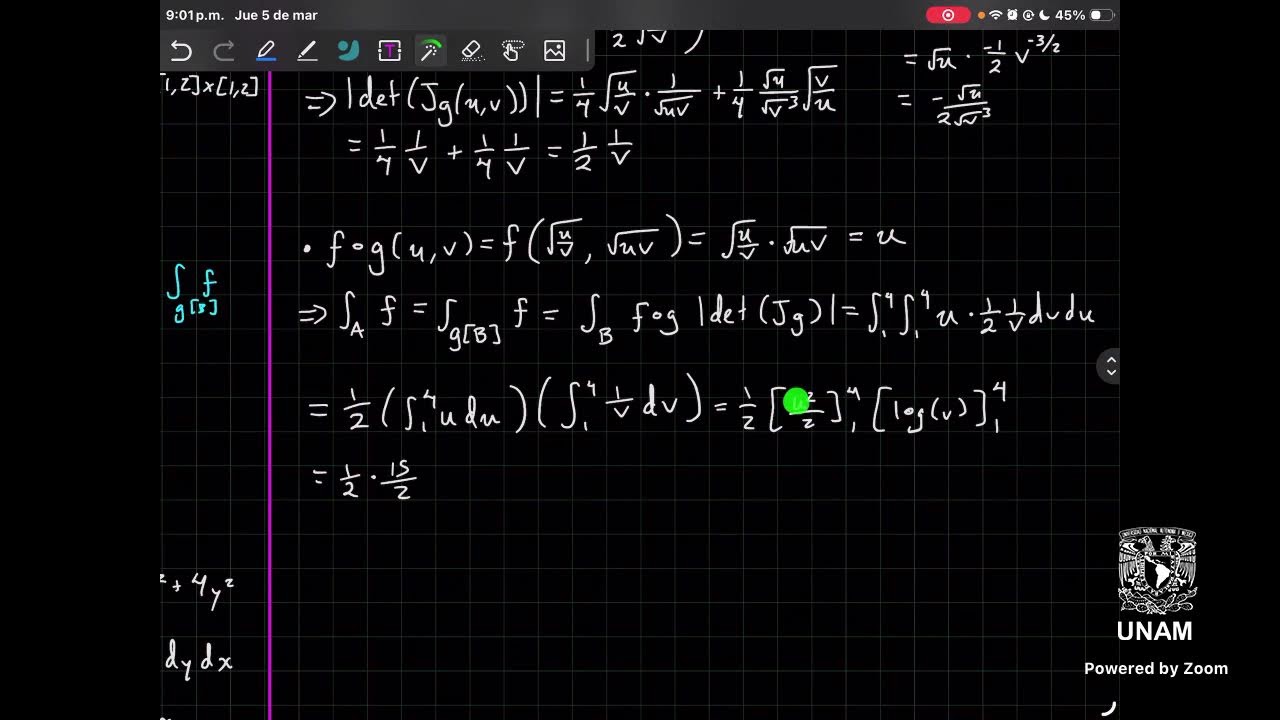 9:01 p.m. Jue 5 de mar 45%
2 √v )
= √u · -1/2 v^{-3/2}
[1,2]x[1,2]
=> |det(Jg(u,v))| = 1/4 √(u/v) · 1/√(uv) + 1/4 √u/√v³ √(v/u)
= -√u/(2√v³)
= 1/4 1/v + 1/4 1/v = 1/2 1/v
• f∘g(u,v) = f(√(u/v), √(uv)) = √(u/v) · √(uv) = u
∫_{g[B]} f
=> ∫_A f = ∫_{g[B]} f = ∫_B f∘g |det(Jg)| = ∫_1^4 ∫_1^4 u · 1/2 1/v dv du
= 1/2 (∫_1^4 u du) (∫_1^4 1/v dv) = 1/2 [u²/2]_1^4 [log(v)]_1^4
= 1/2 · 15/2
² + 4y²
dy dx
UNAM
Powered by Zoom